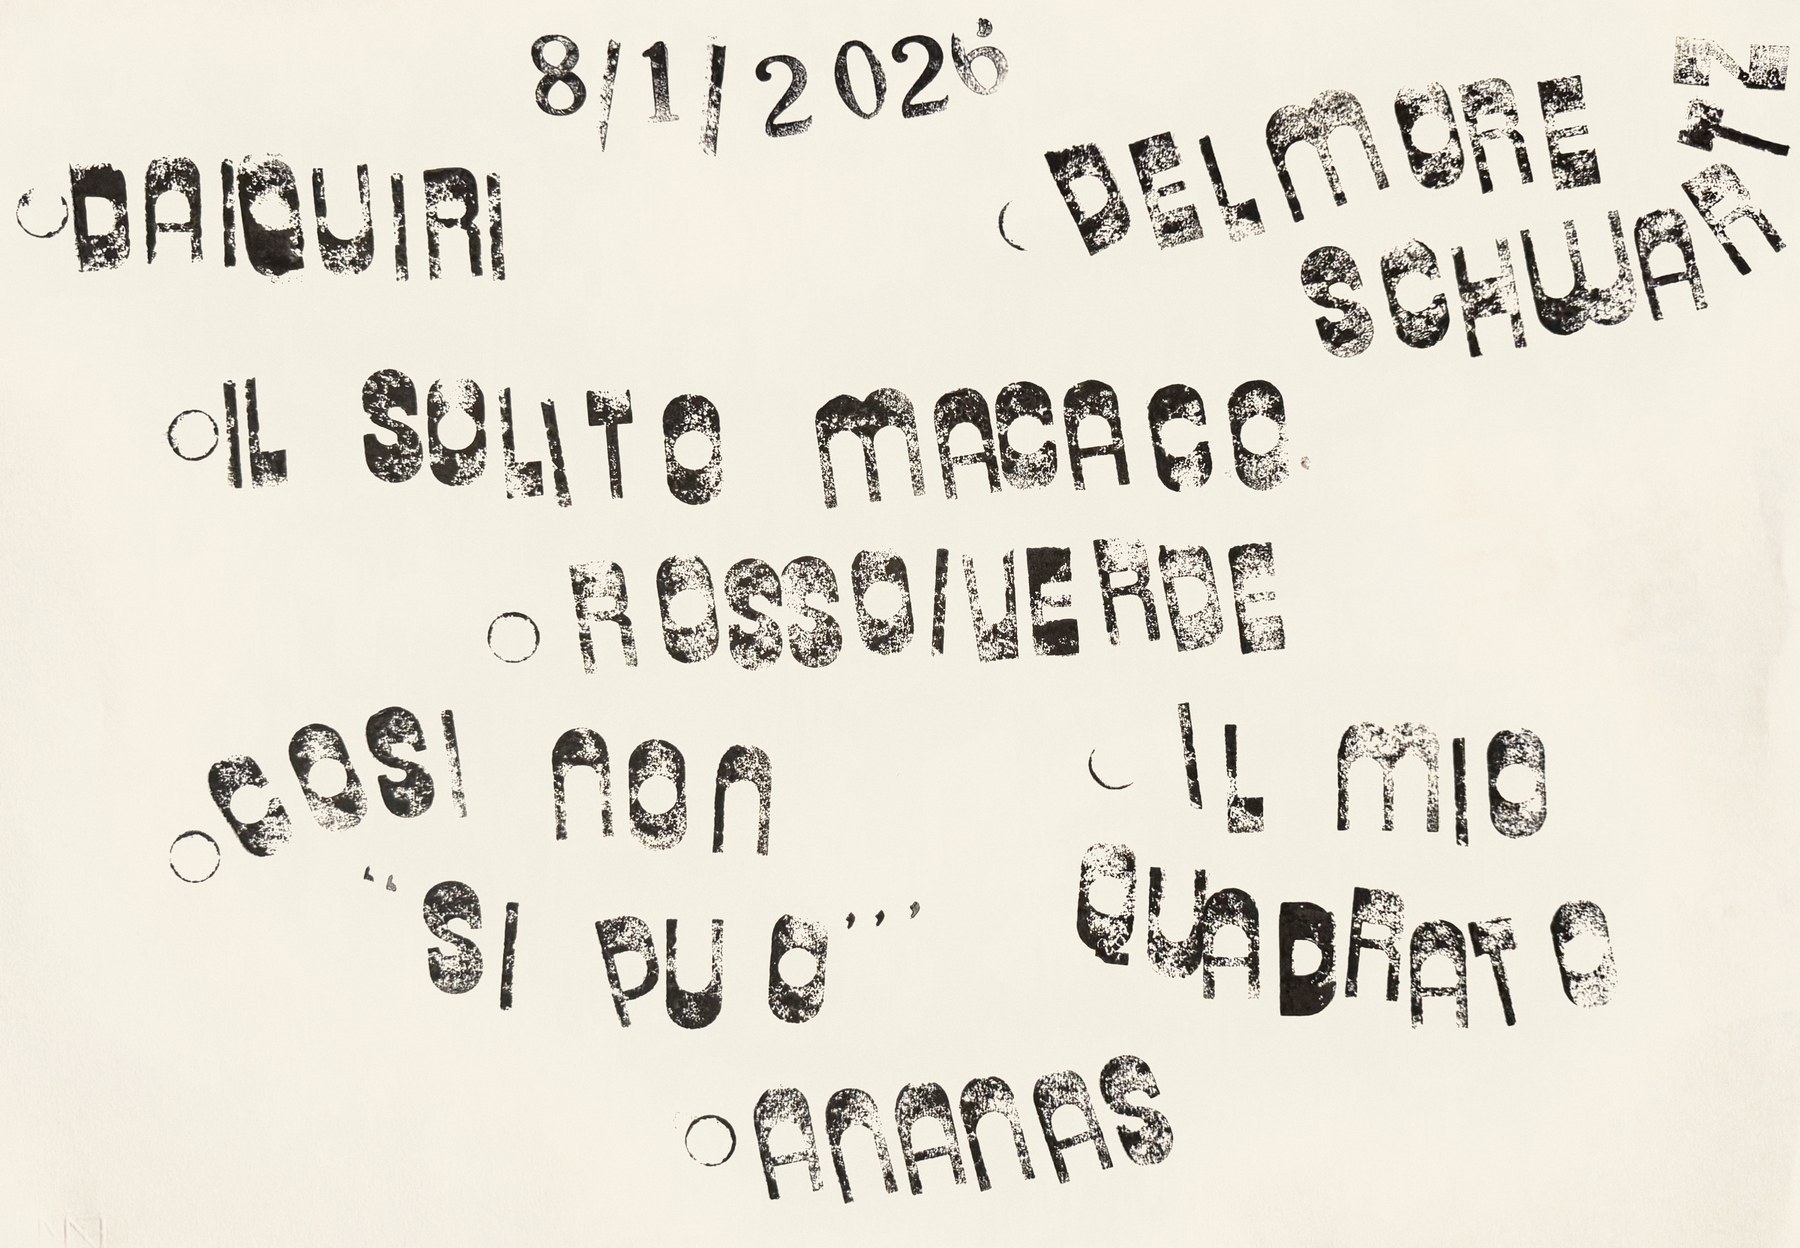 8/1/2026
DAIQUIRI
DELMORE
SCHWARTZ
IL SOLITO MACACO
ROSSO/VERDE
COSI NON
“SI PUO’’’
IL MIO
QUADRATO
ANANAS